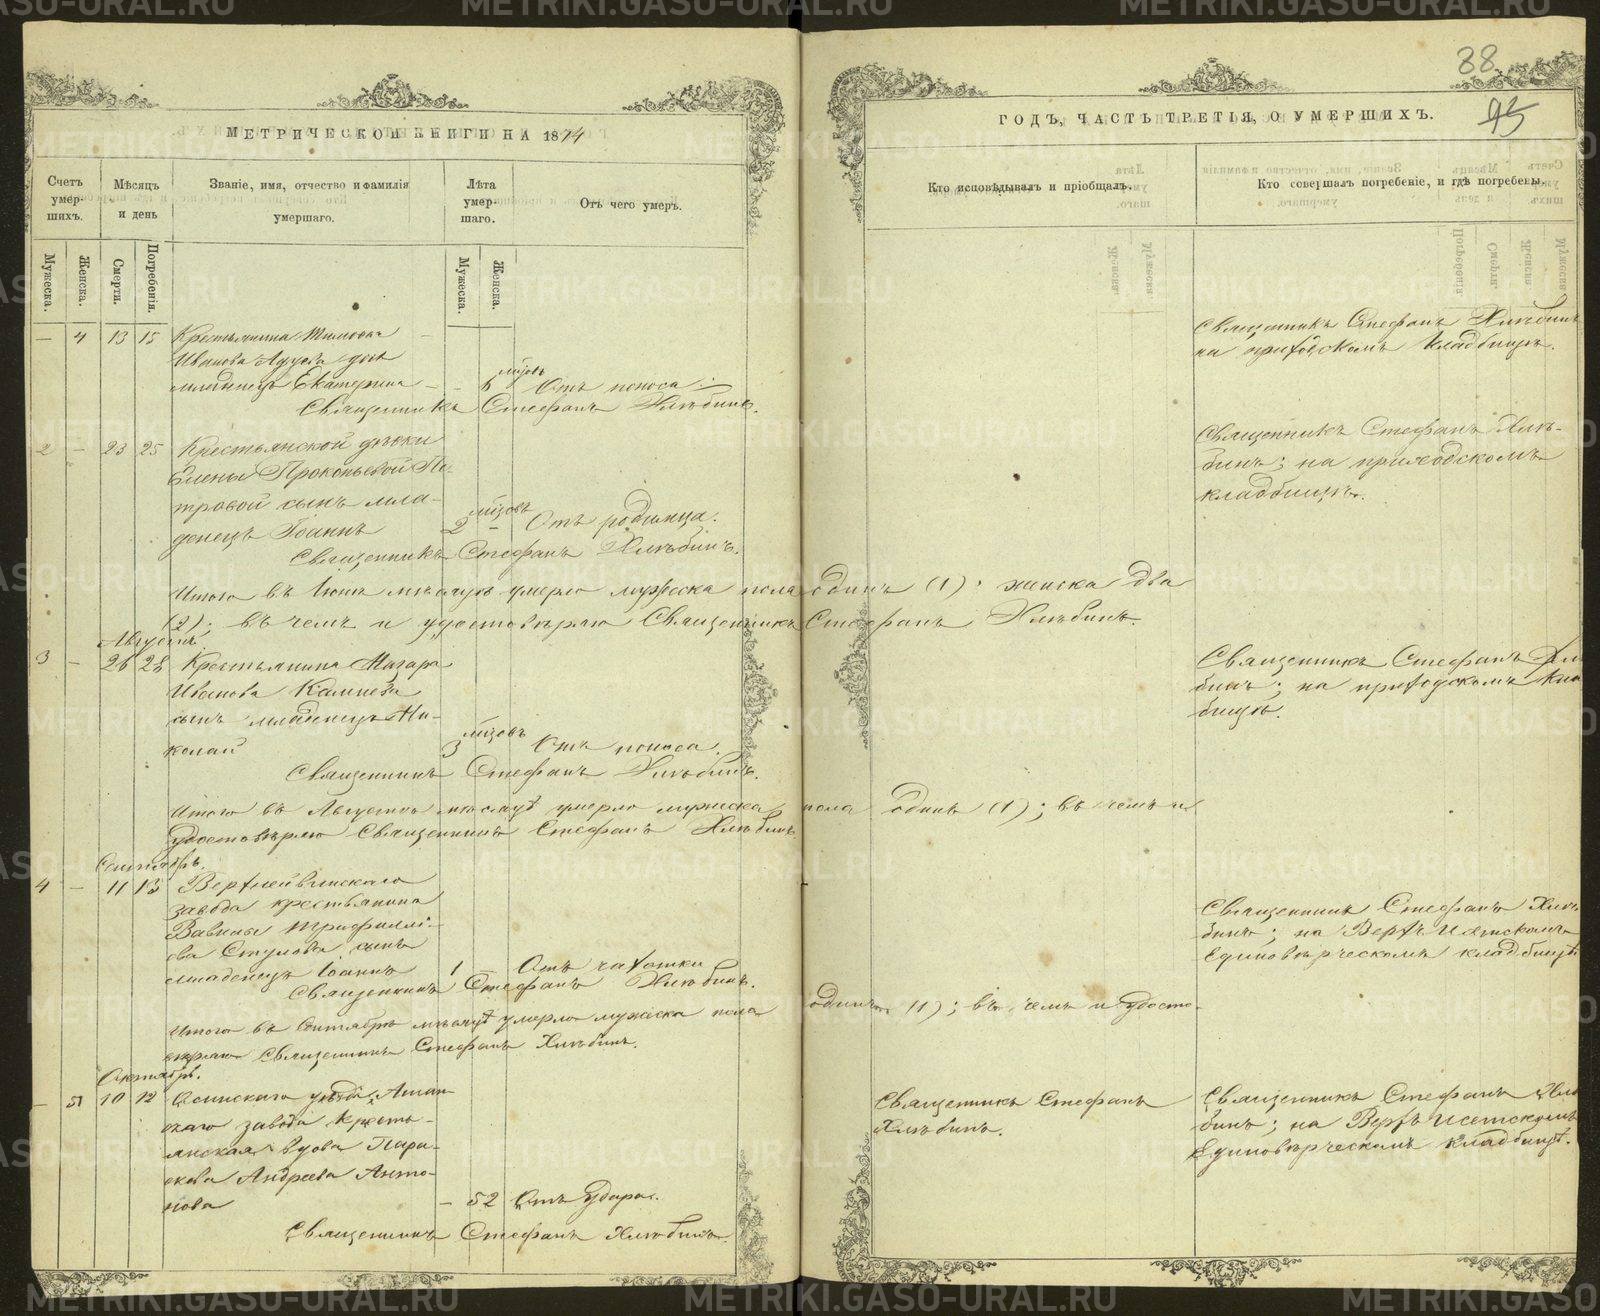 88
95
МЕТРИЧЕСКОЙ КНИГИ НА 1874
ГОДЪ, ЧАСТЬ ТРЕТІЯ, О УМЕРШИХЪ.
Счетъ умер-шихъ.
Мѣсяцъ и день
Званіе, имя, отчество и фамилія умершаго.
Лѣта умер-шаго.
Отъ чего умеръ.
Кто исповѣдывалъ и пріобщалъ.
Кто совершалъ погребеніе, и гдѣ погребены.
Мужеска.
Женска.
Смерти.
Погребенія.
Мужеска.
Женска.
— 4 13 15 Крестьянина
Иванова дочь
младенецъ Екатерина — 6 мѣсяц. Отъ поноса
Священникъ Стефанъ Хлѣбинъ.
Священникъ Стефанъ Хлѣбинъ
на приходскомъ кладбищѣ.
2 — 23 25 Крестьянской дѣвки
Елены Прокопьевой Пе-
тровой сынъ мла-
денецъ Іоаннъ 2 — Отъ родимца.
Священникъ Стефанъ Хлѣбинъ.
Священникъ Стефанъ Хлѣ-
бинъ; на приходскомъ
кладбищѣ.
Итого въ мѣсяцѣ умерло мужеска пола одинъ (1); женска два
(2); въ чемъ и удостовѣряю Священникъ Стефанъ Хлѣбинъ.
Августъ.
3 — 26 28 Крестьянина
Иванова
сынъ младенецъ Ни-
колай 3 Отъ поноса.
Священникъ Стефанъ Хлѣбинъ.
Священникъ Стефанъ Хлѣ
бинъ; на приходскомъ кла
бищѣ.
Итого въ Августѣ мѣсяцѣ умерло мужеска пола одинъ (1); въ чемъ и
удостовѣряю Священникъ Стефанъ Хлѣбинъ.
Сентябрь.
4 — 11 13 Верхнейвинскаго
завода крестьянина
Вавилы Трифилі-
ева сынъ
младенецъ Іоаннъ 1 Отъ чахотки
Священникъ Стефанъ Хлѣбинъ.
Священникъ Стефанъ Хлѣ-
бинъ; на Верхъ Исетскомъ
Единовѣрческомъ кладбищѣ
Итого въ Сентябрѣ мѣсяцѣ умерло мужеска пола одинъ (1); въ чемъ и удосто-
вѣряю Священникъ Стефанъ Хлѣбинъ.
Октябрь.
— 5 10 12 Осинскаго уѣзда,
скаго завода кресть-
янская вдова Пара-
скева Андреева Анто-
нова — 52 Отъ удара.
Священникъ Стефанъ Хлѣбинъ.
Священникъ Стефанъ
Хлѣбинъ.
Священникъ Стефанъ Хлѣ
бинъ; на Верхъ Исетскомъ
Единовѣрческомъ кладбищѣ.
METRIKI.GASO-URAL.RU